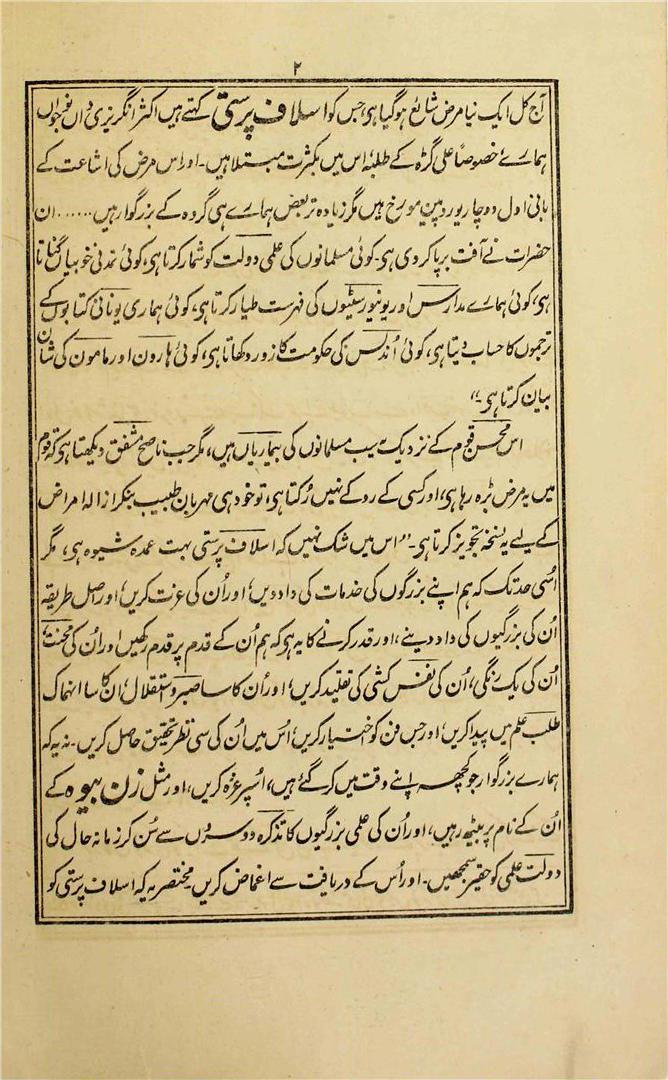 ۲
آج کل ایک نیا مرض شایع ہوگیا ہی جس کو اسلاف پرستی کہتے ہیں اکثر انگریزی داں نوجواں
ہمارے خصوصاً علی گڑہ کے طلبہ اس میں بکثرت مبتلا ہیں۔ اور اس مرض کی اشاعت کے
بانی اول دوچار یوروپین مورخ ہیں مگر زیادہ تر بعض ہمارے ہی گروہ کے بزرگوار ہیں ...... ان
حضرات نے آفت برپا کردی ہی۔ کوئی مسلمانوں کی علمی دولت کو شمار کرتا ہی، کوئی تمدنی خوبیاں گناتا
ہی، کوئی ہمارے مدارس اور یونیورسٹیوں کی فہرست طیار کرتا ہی، کوئی ہماری یونانی کتابوں کے
ترجموں کا حساب دیتا ہی، کوئی اُندلس کی حکومت کا زور دکھاتا ہی، کوئی ہارون اور مامون کی شان
بیان کرتا ہی۔"
اس محسن قوم کے نزدیک یہ سب مسلمانوں کی بیماریاں ہیں، مگر جب ناصح مشفق دیکھتا ہی کہ قوم
میں یہ مرض بڑہ رہا ہی، اور کسی کے روکے نہیں رُکتا ہی، تو خود ہی مہربان طبیب بنکر ازالہ امراض
کے لیے یہ نسخہ تجویز کرتا ہی۔ "اس میں شک نہیں کہ اسلاف پرستی بہت عمدہ شیوہ ہی، مگر
اُسی حد تک کہ ہم اپنے بزرگوں کی خدمات کی داد دیں؛ اور اُن کی عزت کریں؛ اور اصل طریقہ
اُن کی بزرگیوں کی داد دینے، اور قدر کرنے کا یہ ہی کہ ہم اُن کے قدم پر قدم رکھیں اور اُن کی محنت،
اُن کی یک رنگی، اُن کی نفس کشی کی تقلید کریں؛ اور اُن کا سا صبر و استقلال، اُن کا سا انہماک
طلب علم میں پیدا کریں؛ اور جس فن کو اختیار کریں؛ اُس میں اُن کی سی نظر تحقیق حاصل کریں۔ نہ یہ کہ
ہمارے بزرگوار جو کچھ اپنے وقت میں کرگئے ہیں، اُسپر غرہ کریں، اور مثل زن بیوہ کے
اُن کے نام پر بیٹھ رہیں، اور اُن کی علمی بزرگیوں کا تذکرہ دوسرُوں سے سُن کر زمانہ حال کی
دولت علمی کو حقیر سمجھیں۔ اور اُس کے دریافت سے اغماض کریں۔ مختصر یہ کہ اسلاف پرستی کو